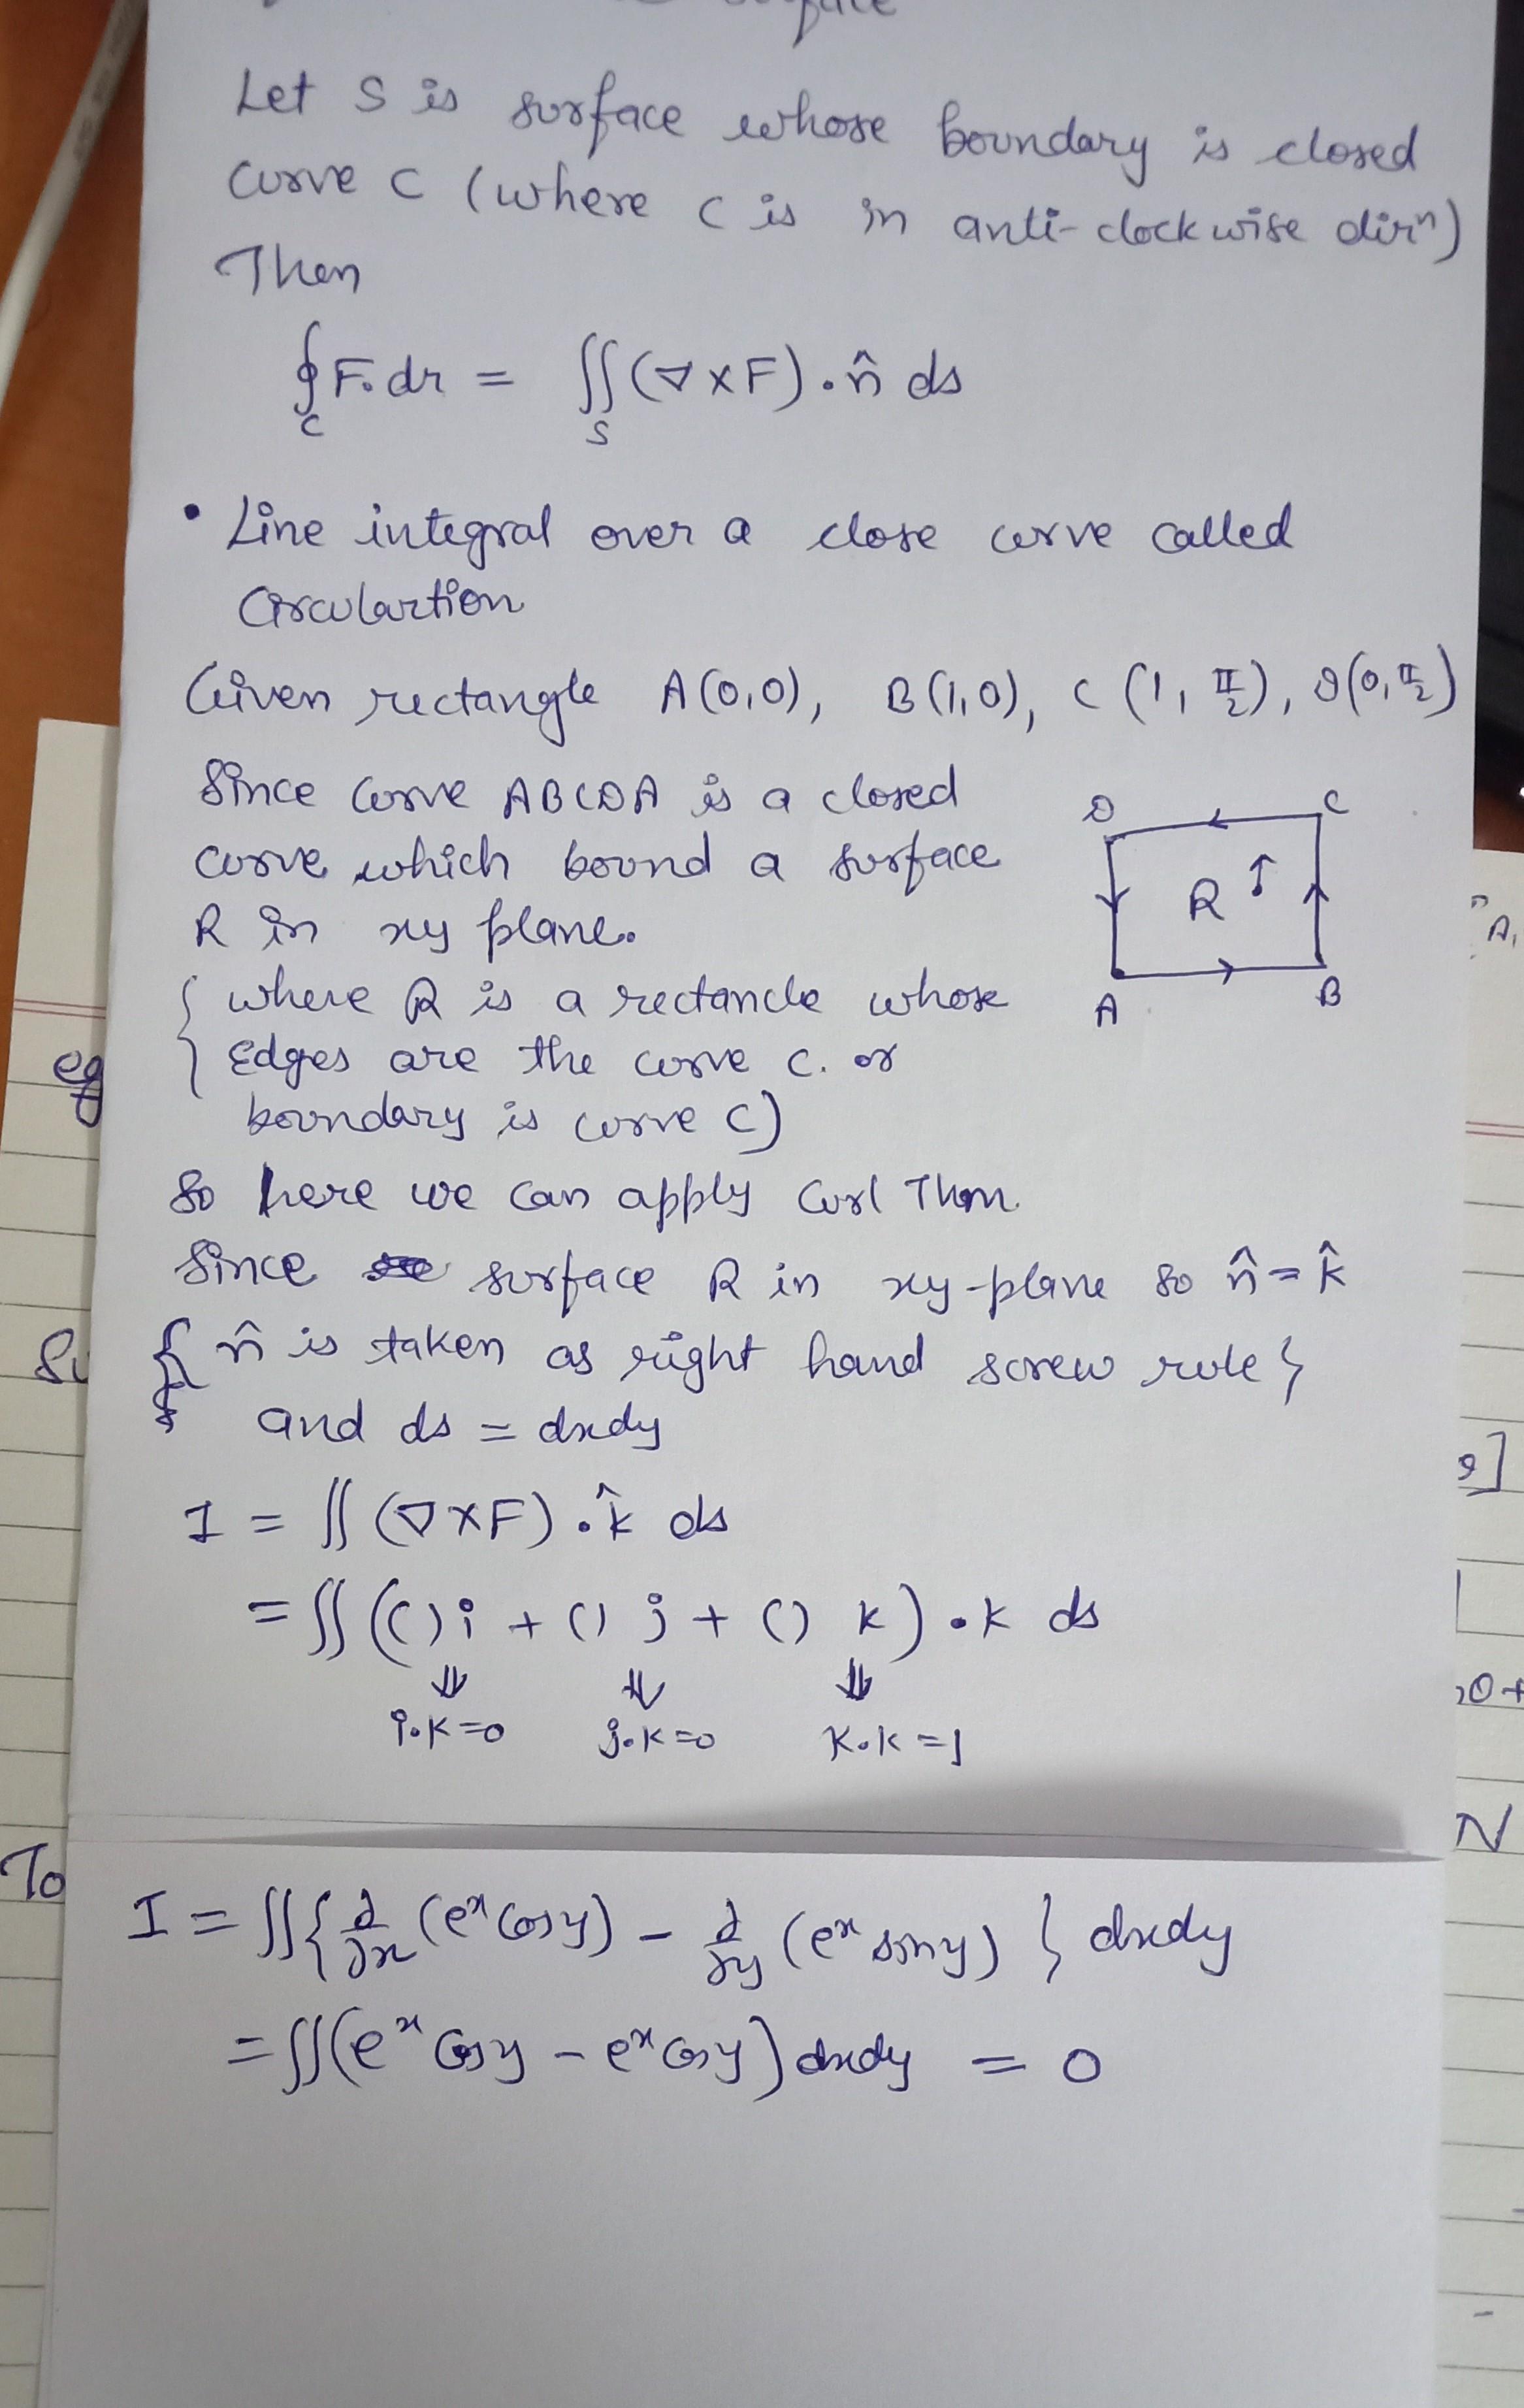 surface
Let S is surface whose boundary is closed
curve C (where C is in anti-clockwise dirⁿ)
Then
∮_C F.dr = ∬_S (∇×F).n̂ ds
• Line integral over a close curve called
Circulartion
Given rectangle A(0,0), B(1,0), C(1, π/2), D(0, π/2)
Since curve ABCDA is a closed
curve which bound a surface
R in xy plane.
{ where R is a rectancle whose
Edges are the curve C. or
boundary is curve C)
D C
R ↑
A B
So here we can apply Curl Thm.
Since surface R in xy-plane so n̂ = k̂
{ n̂ is taken as right hand screw rule }
and ds = dxdy
I = ∬ (∇×F).k̂ ds
= ∬ (( )i + ( ) j + ( ) k) . k ds
⇓ ⇓ ⇓
i.k=0 j.k=0 k.k=1
I = ∬{ ∂/∂x (eˣ cosy) - ∂/∂y (eˣ siny) } dxdy
= ∬(eˣ cosy - eˣ cosy) dxdy = 0
eg
To
N